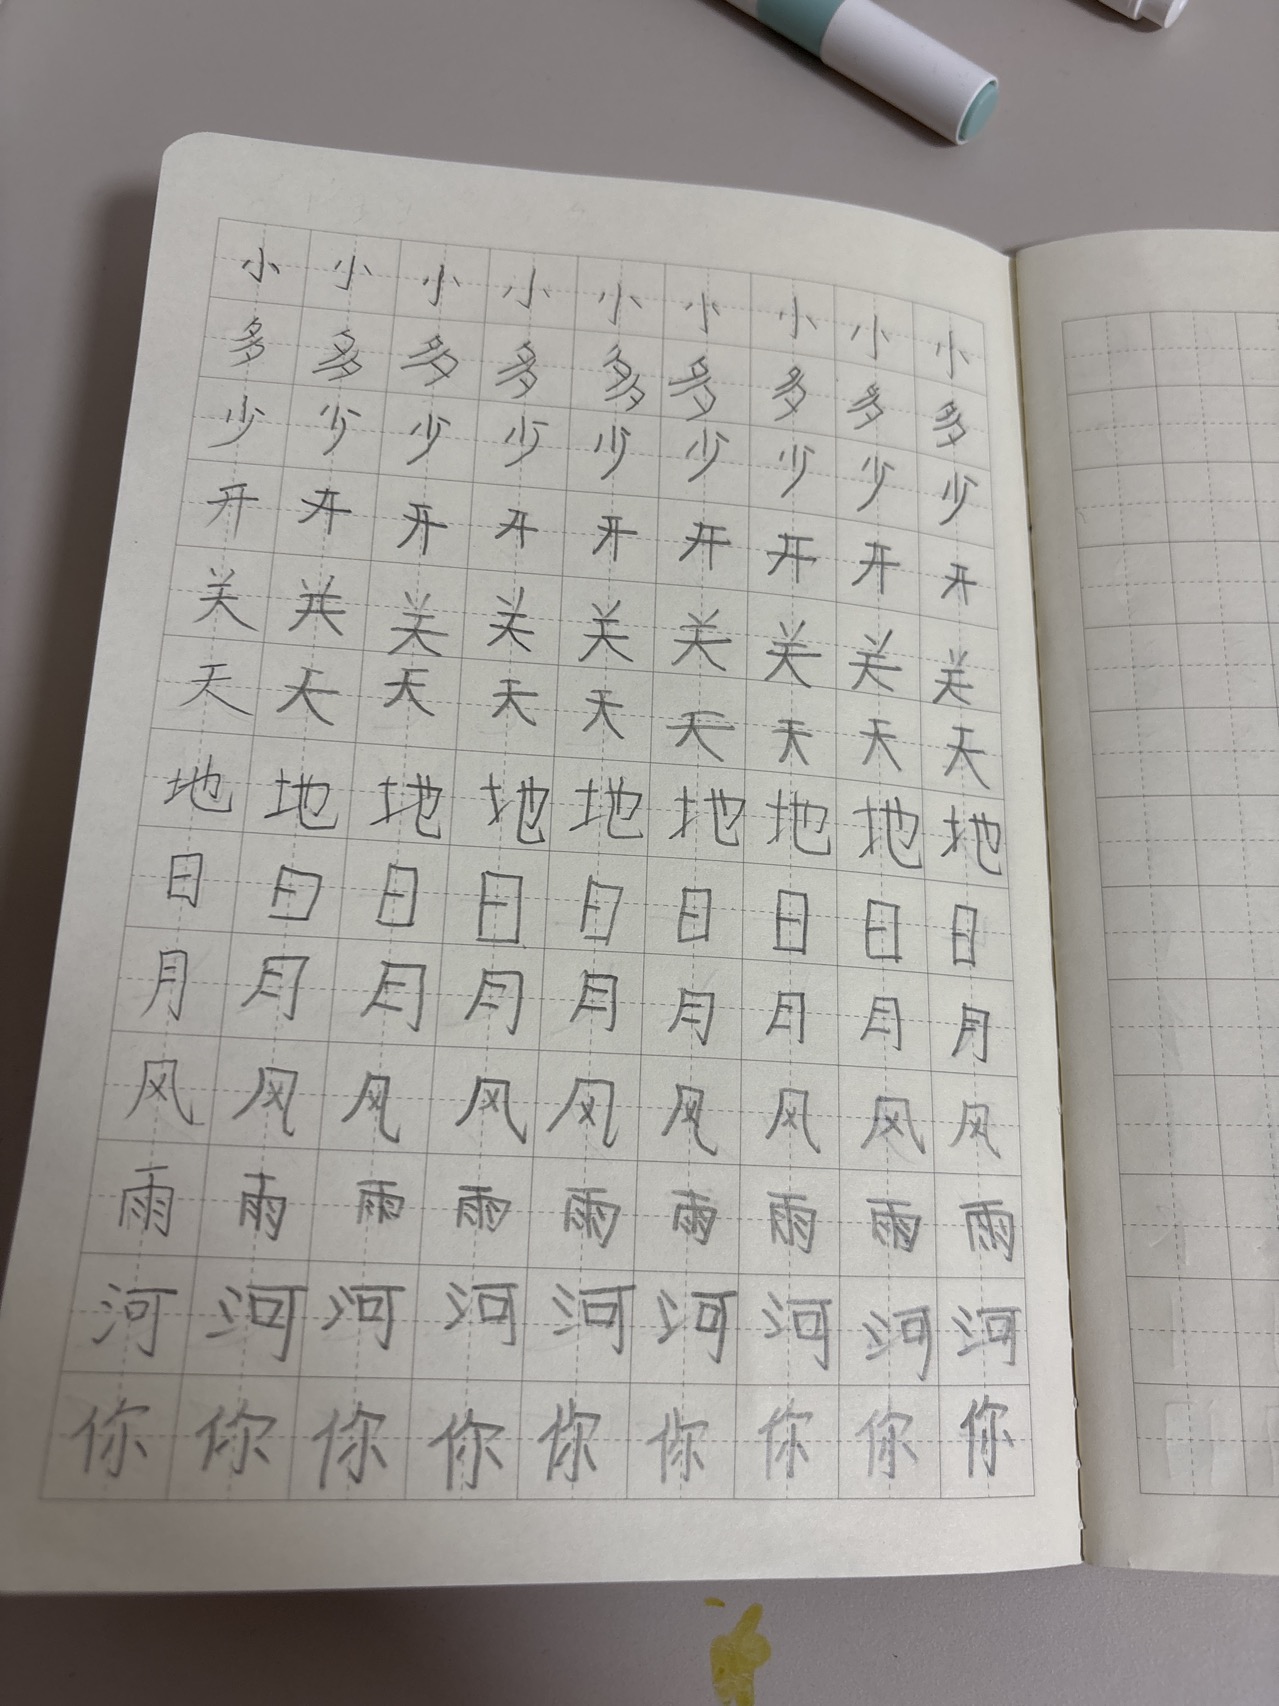 小小小小小小小小小
多多多多多多多多多
少少少少少少少少少
开开开开开开开开开
关关关关关关关关关
天天天天天天天天天
地地地地地地地地地
日日日日日日日日日
月月月月月月月月月
风风风风风风风风风
雨雨雨雨雨雨雨雨雨
河河河河河河河河河
你你你你你你你你你